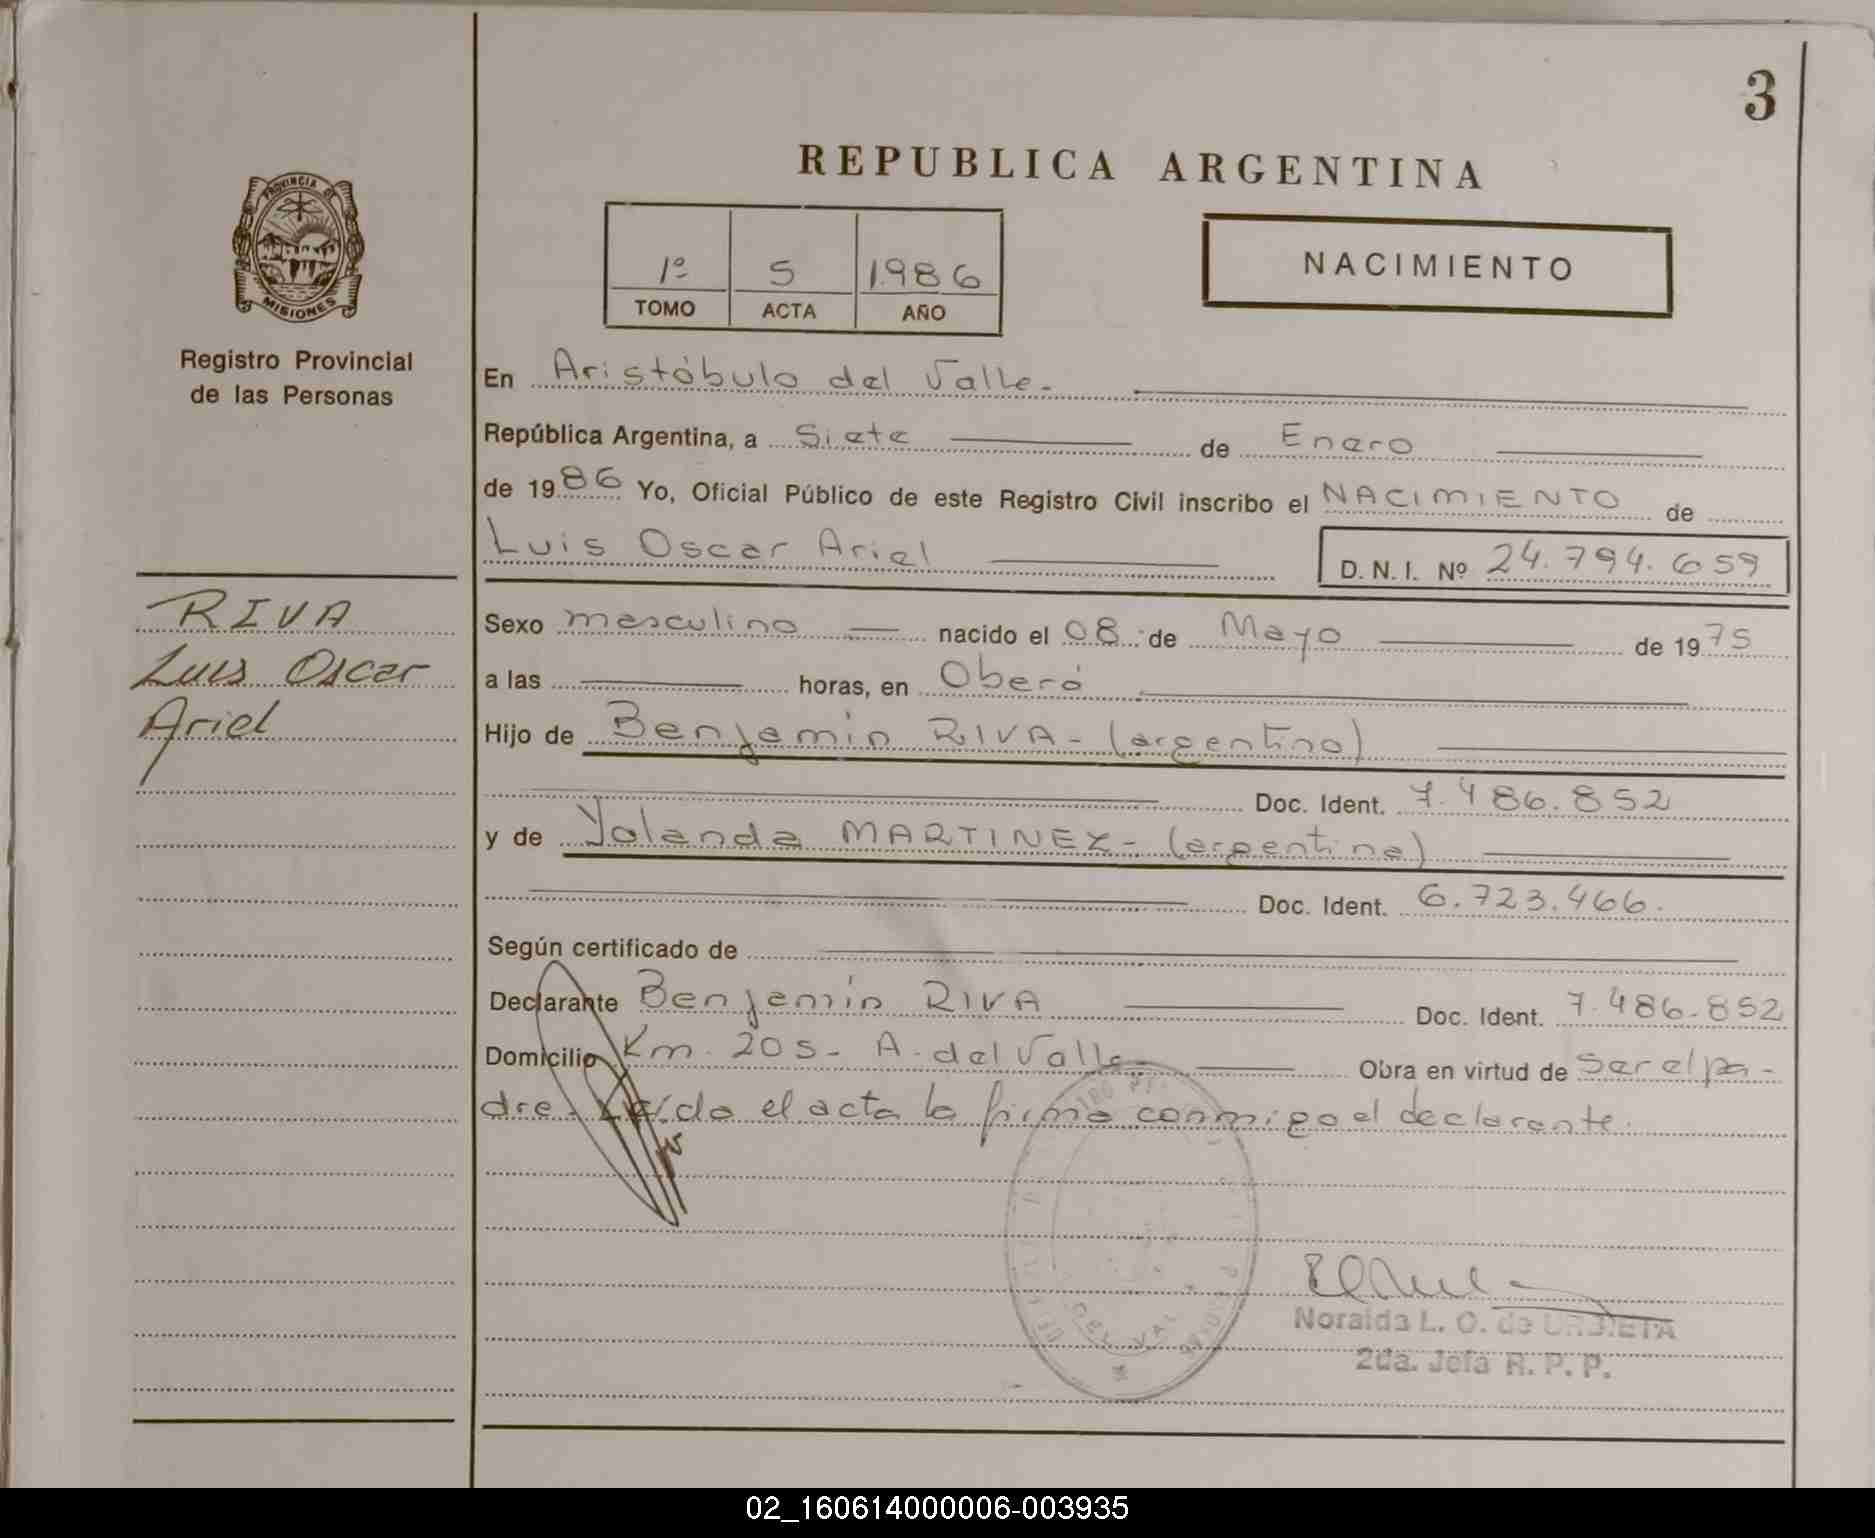 3
REPUBLICA ARGENTINA
PROVINCIA DE
MISIONES
Registro Provincial
de las Personas
1º 5 1986
TOMO ACTA AÑO
NACIMIENTO
En Aristóbulo del Valle.
República Argentina, a Siete de Enero
de 1986 Yo, Oficial Público de este Registro Civil inscribo el NACIMIENTO de
Luis Oscar Ariel D. N. I. Nº 24.794.659
RIVA
Luis Oscar
Ariel
Sexo masculino nacido el 08 de Mayo de 1975
a las horas, en Oberá
Hijo de Benjamín RIVA - (argentino)
Doc. Ident. 7.486.852
y de Yolanda MARTINEZ - (argentina)
Doc. Ident. 6.723.466.
Según certificado de
Declarante Benjamín RIVA Doc. Ident. 7.486.852
Domicilio Km. 205 - A. del Valle Obra en virtud de ser el pa-
dre. Leída el acta la firma conmigo el declarante.
DEL VALLE
Noraida L. O. de URBIETA
2da. Jefa R. P. P.
02_160614000006-003935